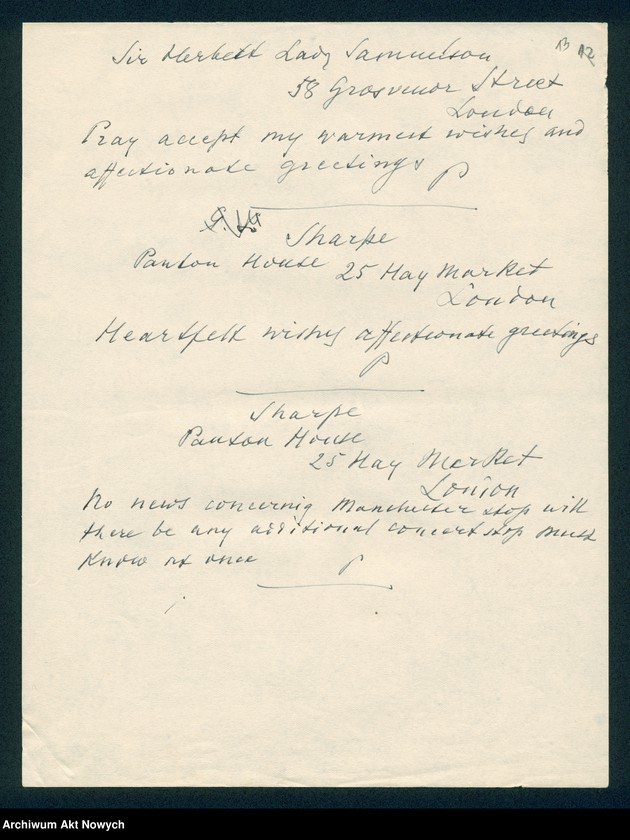 Sir Herbert Lady Samuelson
58 Grosvenor Street
London
Pray accept my warmest wishes and
affectionate greetings
P
Sharpe
Panton House 25 Hay Market
London
Heartfelt wishes affectionate greetings
P
Sharpe
Panton House
25 Hay Market
London
No news concernig Manchester stop will
there be any additional concert stop must
know at once P
Archiwum Akt Nowych